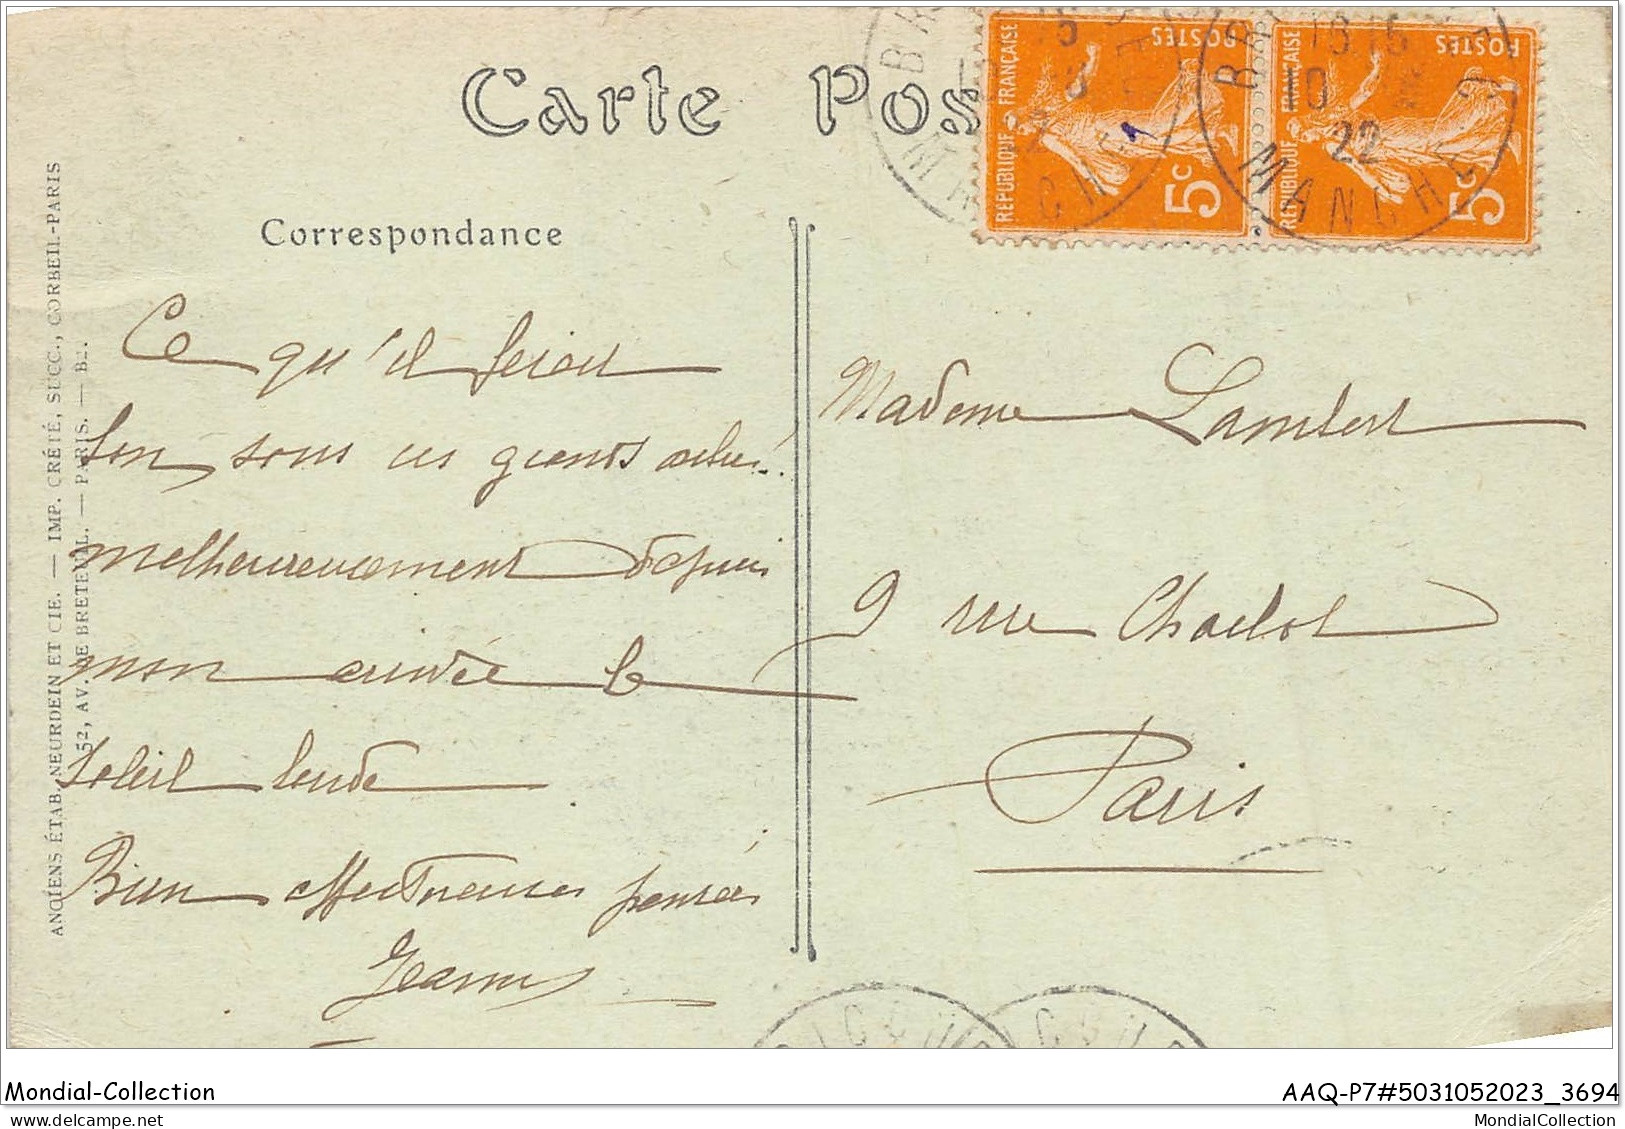 Carte Pos
Correspondance
Ce qu'il ferait
bon sous ces grands arbres.
malheureusement depuis
mon arrivée le
soleil boude
Bien affectueuses pensées
Jeanne
Madame Lambert
9 rue Charlot
Paris
RÉPUBLIQUE FRANÇAISE
POSTES
5c
RÉPUBLIQUE FRANÇAISE
POSTES
5c
22
MANCHE
ANCIENS ÉTAB. NEURDEIN ET CIE. — IMP. CRÉTÉ, SUCC., CORBEIL-PARIS
52, AV. DE BRETEUIL. — PARIS. —
Mondial-Collection
AAQ-P7#5031052023_3694
delcampe.net
MondialCollection